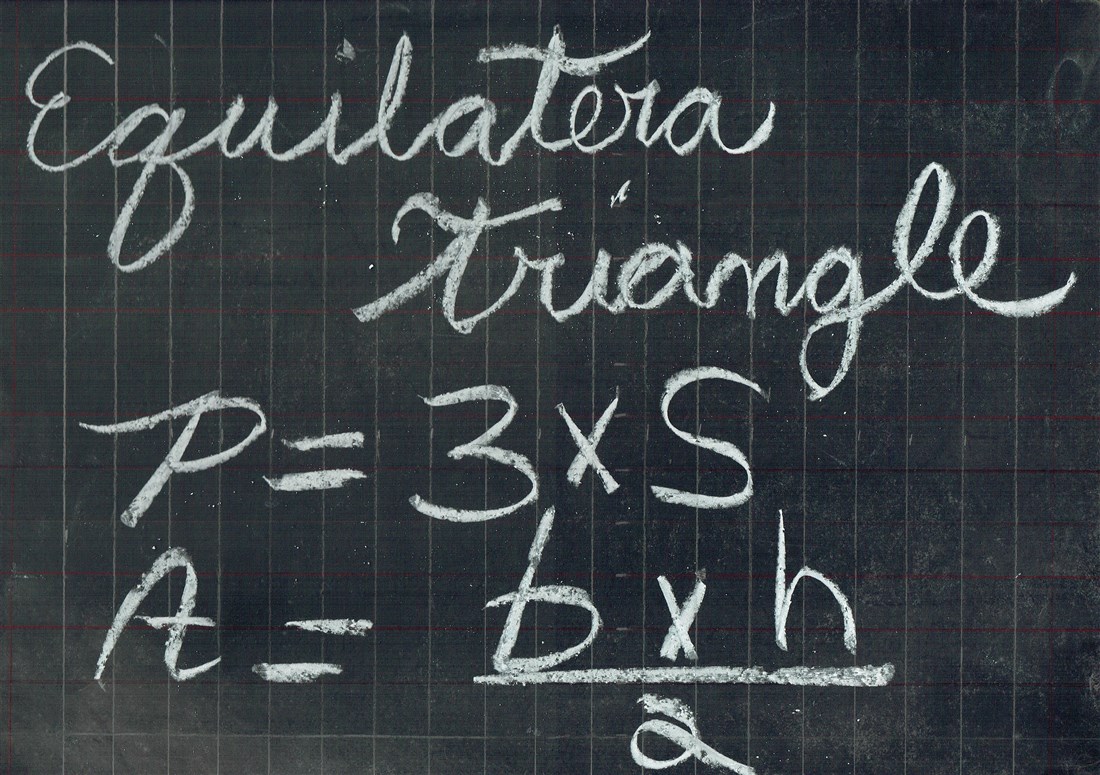 Equilatera
triangle
P = 3 x S
A = b x h
2